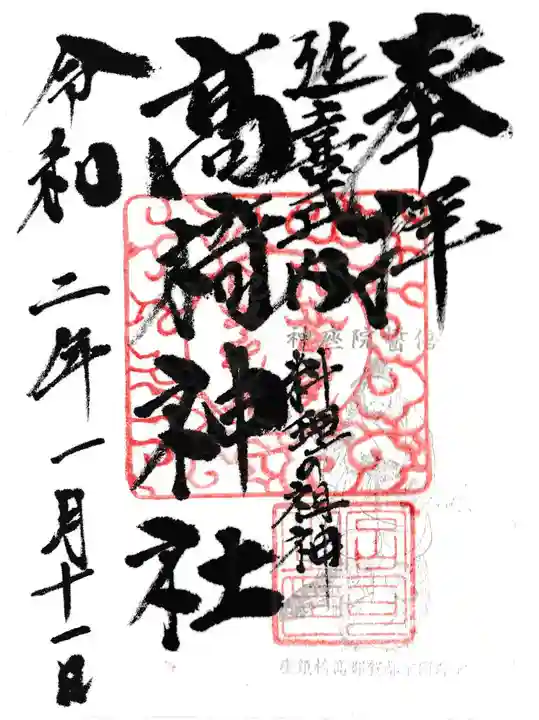 奉拝
延喜式内
料理の祖神
高椅神社
令和二年一月十一日